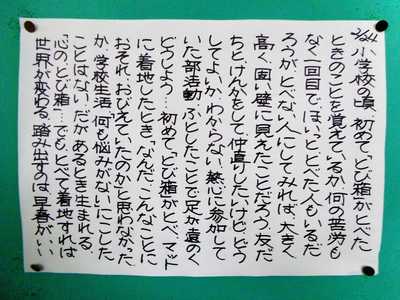 2/24
小学校の頃、初めて「とび箱がとべた
ときのことを覚えているか。何の苦労も
なく一回目で、ほいっととべた人もいるだ
ろうが、とべない人にしてみれば、大きく
高く、固い壁に見えたことだろう。友だ
ちとけんかをして、仲直りしたいけど、どう
してよいかわからない。熱心に参加して
いた部活動、ふとしたことで足が遠のく
どうしよう…初めて、とび箱がとべ、マッド
に着地したとき、「なんだ、こんなことに
おそれ、おびえていたのか」と思わなかった
か。学校生活、何も悩みがないにこした
ことはない。だがあるとき生まれる、
心の「とび箱」…でも、とべて着地すれば
世界が変わる。踏み出すのは、早春がいい